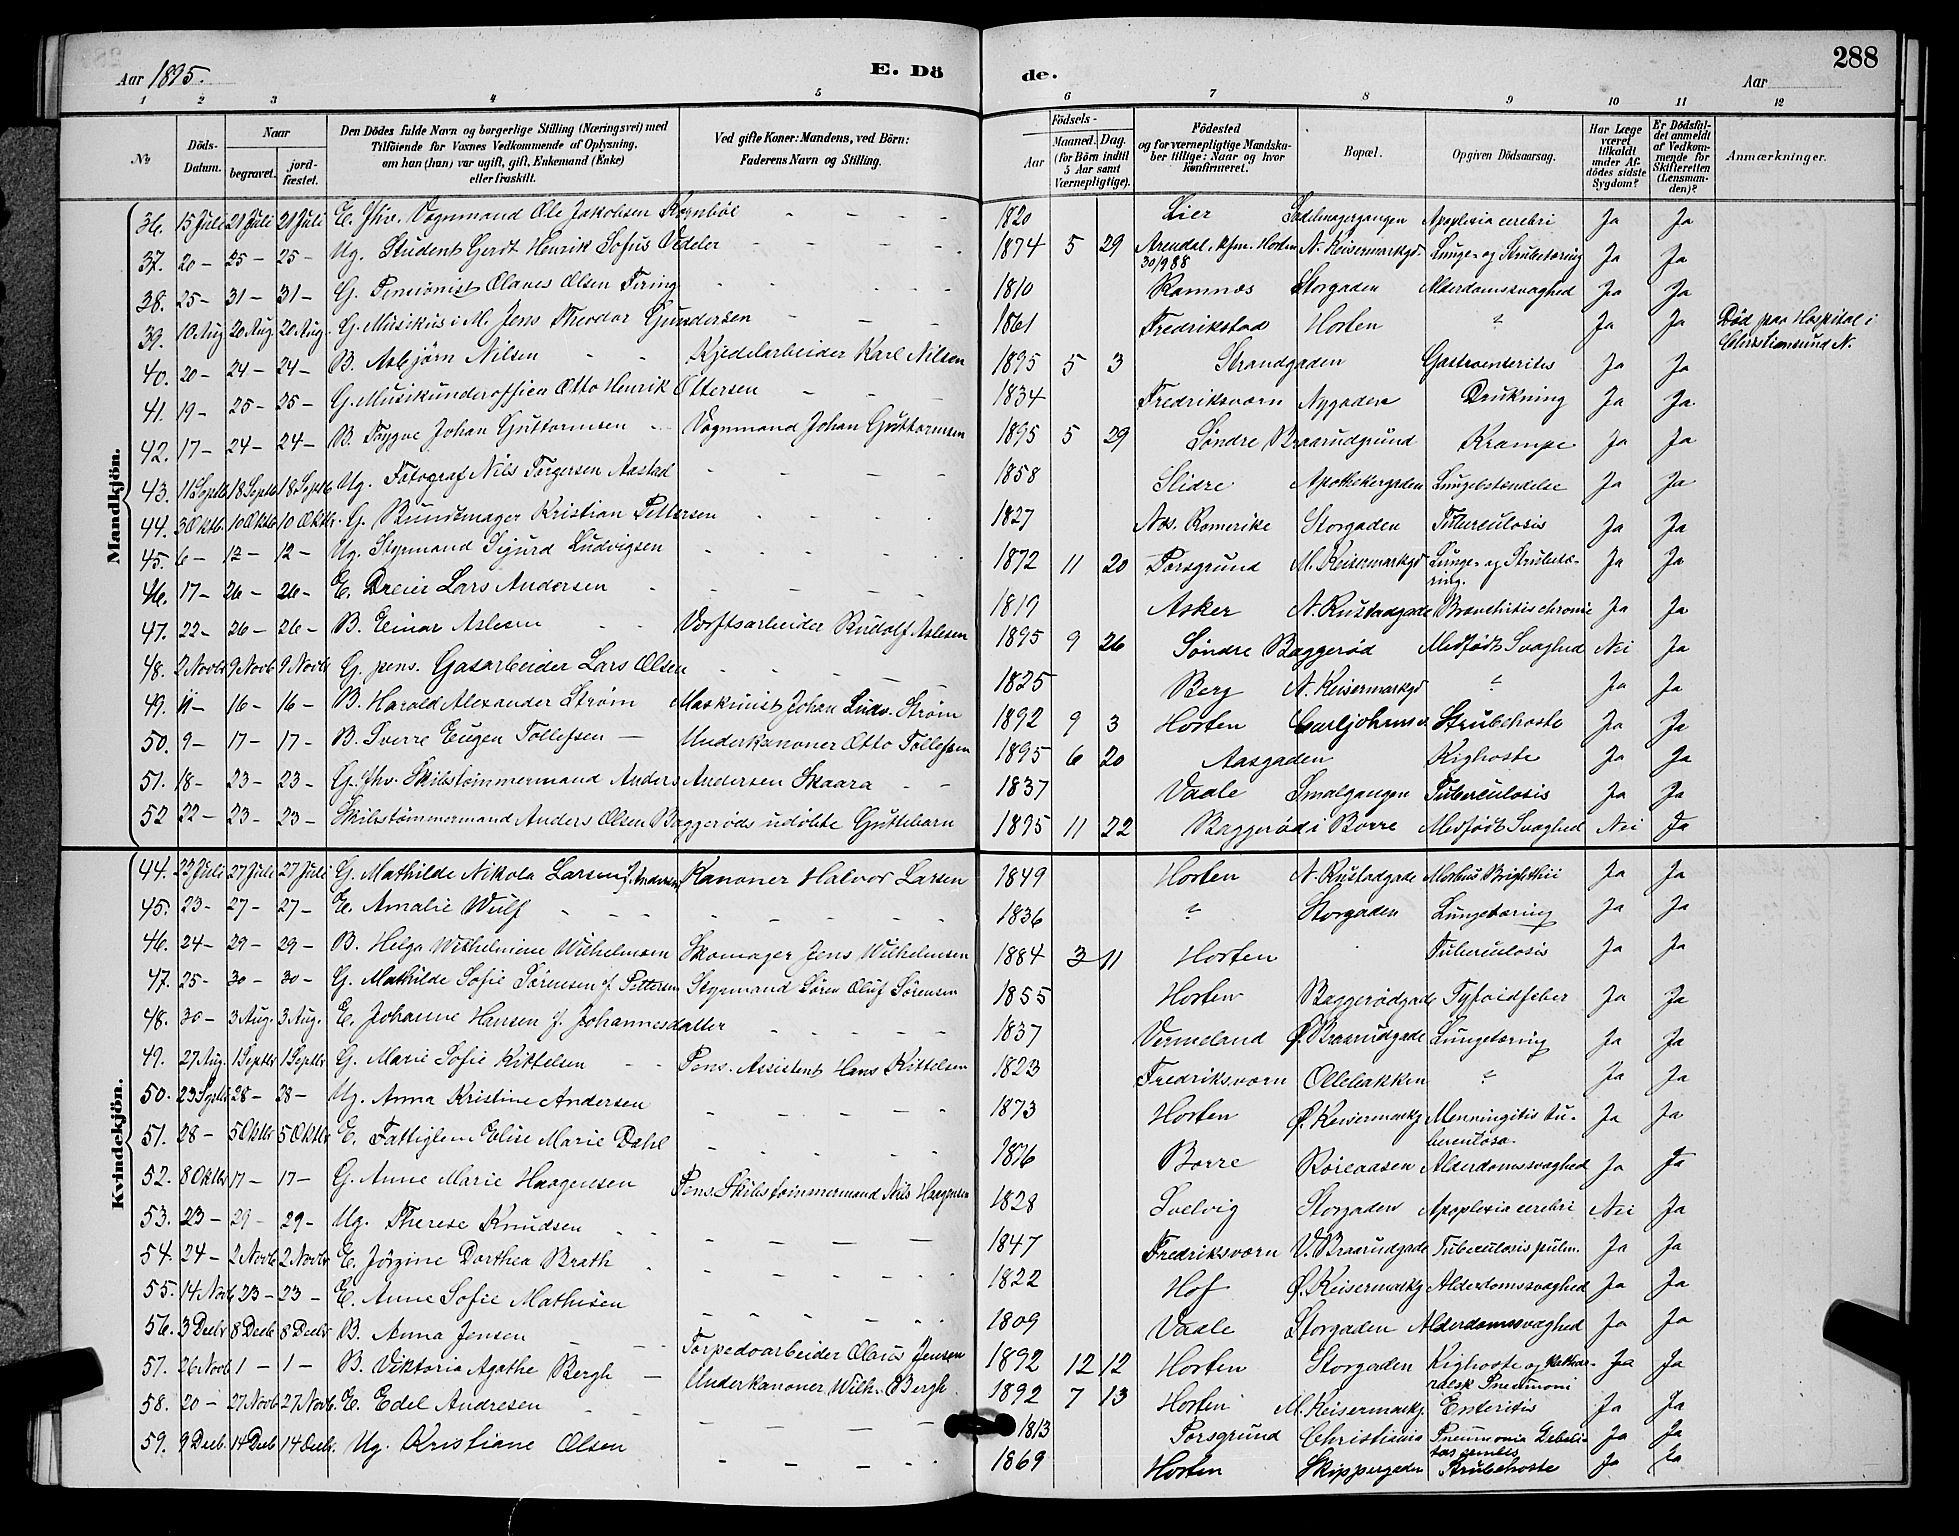 288
Aar 1895. E. Dö de. Aar
1 2 3 4 5 6 7 8 9 10 11 12
No
Döds-Datum.
Naar begravet. jord-fæstet.
Den Dödes fulde Navn og borgerlige Stilling (Næringsvei) med
Tilföiende for Voxnes Vedkommende af Oplysning,
om han (hun) var ugift, gift, Enkemand (Enke)
eller fraskilt.
Ved gifte Koner: Mandens, ved Börn:
Faderens Navn og Stilling.
Födsels-
Aar Maaned. Dag.
(for Börn indtil
5 Aar samt
Værnepligtige).
Födested
og for værnepligtige Mandska-
ber tillige: Naar og hvor
konfirmeret.
Bopæl.
Opgiven Dödsaarsag.
Har Læge
været
tilkaldt
under Af-
dödes sidste
Sygdom?
Er Dödsfal-
det anmeldt
af Vedkom-
mende for
Skifteretten
(Lensman-
den)?
Anmærkninger.
Mandkjön.
36. 15 Juli 21 Juli 21 Juli E. fhv. Vognmand Ole Jakobsen Kognböl - - - - 1820 Lier Sadelmagergangen Apoplexia cerebri Ja Ja
37. 20 - 25 - 25 - Ug. Student Gerdt Henrik Sofus Vedeler - - - - 1874 5 29 Arendal. kfm. Horten 30/9 88 N. Keisermarkgd. Lunge- og Strubetæring Ja Ja
38. 25 - 31 - 31 - G. Pensionist Olaves Olsen Firing - - - - 1810 Ramnes Storgaden Alderdomssvaghed Ja Ja
39. 10 Aug 20 Aug. 20 Aug. G. Musikus i M. Jens Theodor Gundersen - - - 1861 Fredrikstad Horten ? Ja Ja Död paa Hospital i Christiansund N.
40. 20 - 24 - 24 - B. Asbjörn Nilsen - - Kjedelarbeider Karl Nilsen 1895 5 3 Strandgaden Gastroenterites Ja Ja
41. 19 - 25 - 25 - G. Musikunderofficer Otto Henrik Ottersen - - - 1834 Fredriksværn Nygaden Drukning Ja Ja.
42. 17 - 24 - 24 - B. Trygve Johan Guttormsen - - Vognmand Johan Guttormsen 1895 5 29 Søndre Braarudgrund Krampe Ja Ja
43. 11 Septb 18 Septb 18 Septb Ug. Fotograf Nils Torgersen Aastad - - - 1858 Slidre Apothekergaden Lungebetendelse Ja Ja
44. 3 Oktb. 10 Oktb 10 Oktbr. G. Bundtmager Kristian Pettersen - - - 1827 Nes. Romerike Storgaden Tuberculosis Ja Ja
45. 6 - 12 - 12 - Ug. Styrmand Sigurd Ludvigsen - - - - 1872 11 20 Porsgrund M. Keisermarkgd Lunge- og Strubetæ-ring. Ja Ja
46. 17 - 26 - 26 - E. Dreier Lars Andersen - - - - 1819 Asker N. Rustadgade Bronchitis chronic Ja Ja
47. 22 - 26 - 26 - B. Einar Aslesen - - Verftsarbeider Rudolf Aslesen 1895 9 26 Søndre Baggerød Medfødt Svaghed Nei Ja
48. 2 Novbr 9 Novb. 9 Novb. G. pens. Gasarbeider Lars Olsen - - - - 1825 Berg N. Keisermarkgd ? Ja Ja
49. 11 - 16 - 16 - B. Harald Alexander Strøm Maskinist Johan Ludv. Strøm 1892 9 3 Horten Carljohansv. Strubehoste Ja Ja
50. 9 - 17 - 17 - B. Sverre Eugen Tollefsen - Underkanoner Otto Tollefsen 1895 6 20 Aasgaden Kighoste Ja Ja
51. 18 - 23 - 23 - G. fhv. Skibstømmermand Anders Andersen Skaara - - 1837 Vaale Smalgangen Tuberculosis Ja Ja
52 22 - 23 - 23 - Skibstømmermand Anders Olsen Baggerøds udöbte Guttebarn 1895 11 22 Baggerød i Borre Medfødt Svaghed Nei Ja
Kvindekjön.
44. 22 Juli 27 Juli 27 Juli G. Mathilde Nikola Larsen f. Andersen Kanoner Halvor Larsen 1849 Horten N. Rustadgade Morbus Brightii Ja Ja
45. 23 - 27 - 27 - E. Amalie Wulf - - - - 1836 ? Storgaden Lungetæring Ja Ja
46. 24 - 29 - 29 - B. Helga Wilhelmine Wilhelmsen Skomager Jens Wilhelmsen 1884 3 11 Horten Tuberculosis Ja Ja
47. 25 - 30 - 30 - G. Mathilde Sofie Sørensen f. Pettersen Styrmand Sören Oluf Sørensen 1855 Horten Baggerødgade Tyfoidfeber Ja Ja
48. 30 - 3 Aug. 3 Aug. E. Johanne Hansen f. Johannesdatter - - - 1837 Vermeland Ø. Braarudgade Lungetæring Ja Ja
49. 27 Aug. 1 Septbr 1 Septbr G. Marie Sofie Kittelsen - - Pens. Assistent Hans Kittelsen 1823 Fredriksværn Ollebakken ? Ja Ja
50. 23 Septbr 28 - 28 - Ug. Anna Kristine Andersen - - - - 1873 Horten Ø. Keisermarkg Menningitis tu-berculosa. Ja Ja
51. 28 - 5 Oktbr 5 Oktbr E. Fattiglem Elise Marie Dahl - - - - 1816 Borre Røreaasen Alderdomssvaghed Ja Ja
52. 8 Oktbr 17 - 17 - G. Anne Marie Haagensen Pens. Skibstømmermand Nils Haagensen 1828 Svelvig Storgaden Apoplexia cerebri Nei Ja
53. 23 - 29 - 29 - Ug. Therese Knudsen - - - - 1847 Fredriksværn V. Braarudgade Tuberculosis pulm. Ja Ja
54. 24 - 2 Novb 2 Novbr E. Jörgine Dorthea Brath - - - - 1822 Hof Ø. Keisermarkg Alderdomssvaghed Ja Ja
55. 14 Novb 23 - 23 - E. Anne Sofie Mathisen - - - - 1809 Vaale Storgaden Alderdomssvaghed Ja Ja
56. 3 Decbr 8 Decb 8 Decbr B. Anna Jensen - - Torpedoarbeider Olaus Jensen 1892 12 12 Horten Storgaden Kighoste og kathar-ralsk Pneumoni Ja Ja
57. 26 Novb 1 - 1 - B. Viktoria Agathe Bergh - Underkanoner Wilh. Bergh. 1892 7 13 Horten M. Keisermarkg. Enteritis Ja Ja
58. 20 - 27 Novb 27 Novb. E. Edel Andresen - - - - 1813 Porsgrund Christiania Pneumonia Debili-tas senilis Ja Ja
59. 9 Decb. 14 Decb 14 Decb. Ug. Kristiane Olsen - - - - 1869 Horten Skippergaden Strubehoste Ja Ja